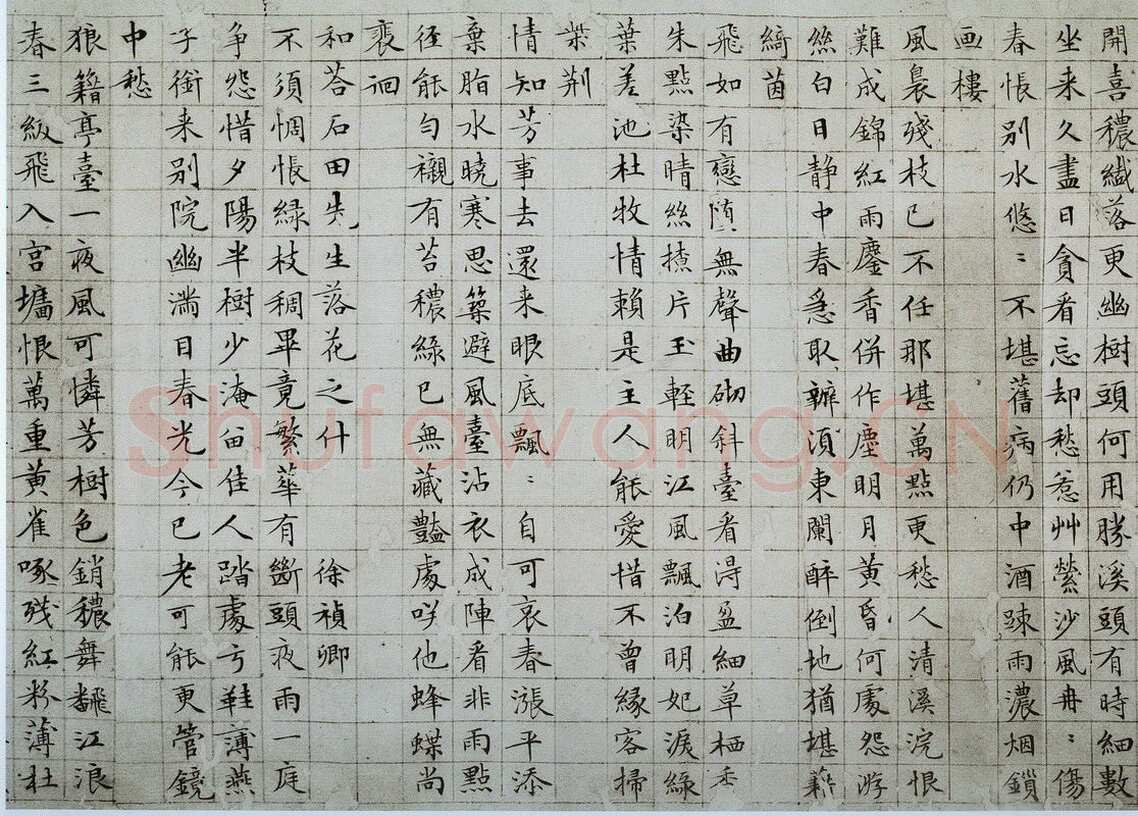 開喜穠纖落更幽樹頭何用勝溪頭有時細數
坐来久盡日貪看忘却愁惹艸縈沙風冉〻傷
春悵别水悠〻不堪舊病仍中酒疎雨濃烟鎖
画樓
風裊殘枝已不任那堪萬點更愁人清溪浣恨
難成錦紅雨鏖香併作塵明月黄昏何處怨游
絲白日静中春急取辦湏東闌醉倒地猶堪藉
綺茵
飛如有戀堕無聲曲砌斜臺看淂盈細草栖
朱點染晴絲撩片玉輕明江風飄泊明妃淚緑
葉差池杜牧情賴是主人能愛惜不曾緣客掃
柴荆
情知芳事去還来眼底飄〻自可哀春漲平添
棄脂水曉寒思築避風臺沾衣成陣看非雨點
徑能勻襯有苔穠緑已無藏豔處咲他蜂蝶尚
裵徊
和荅石田先生落花之什 徐禎卿
不須惆悵緑枝稠畢竟繁華有斷頭夜雨一庭
争怨惜夕陽半樹少淹留佳人踏處弓鞋薄燕
子銜来别院幽满目春光今已老可能更管鏡
中愁
狼籍亭臺一夜風可憐芳樹色銷穠舞飜江浪
春三級飛入宫墻恨萬重黄雀啄殘紅粉薄杜
Shufawang.CN